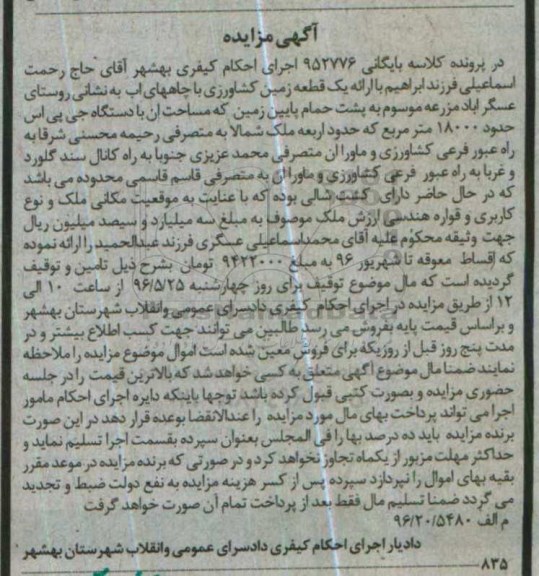 آگهی مزایده
در پرونده کلاسه بایگانی ۹۵۲۷۷۶ اجرای احکام کیفری بهشهر آقای حاج رحمت
اسماعیلی فرزند ابراهیم با ارائه یک قطعه زمین کشاورزی با چاههای اب به نشانی روستای
عسگر اباد مزرعه موسوم به پشت حمام پایین زمین که مساحت ان با دستگاه جی پی اس
حدود ۱۸۰۰۰ متر مربع که حدود اربعه ملک شمالا به متصرفی رحیمه محسنی شرقا به
راه عبور فرعی کشاورزی و ماورا ان متصرفی محمد عزیزی جنوبا به راه کانال سند گلورد
و غربا به راه عبور فرعی کشاورزی و ماورا ان به متصرفی قاسم قاسمی محدوده می باشد
که در حال حاضر دارای کشت شالی بوده که با عنایت به موقعیت مکانی ملک و نوع
کاربری و قواره هندسی ارزش ملک موصوف به مبلغ سه میلیارد و سیصد میلیون ریال
جهت وثیقه محکوم علیه آقای محمد اسماعیلی عسگری فرزند عبدالحمید را ارائه نموده
که اقساط معوقه تا شهریور ۹۶ به مبلغ ۹۴۲۲۰۰۰ تومان بشرح ذیل تامین و توقیف
گردیده است که مال موضوع توقیف برای روز چهارشنبه ۹۶/۵/۲۵ از ساعت ۱۰ الی
۱۲ از طریق مزایده در اجرای احکام کیفری دادسرای عمومی وانقلاب شهرستان بهشهر
و براساس قیمت پایه بفروش می رسد طالبین می توانند جهت کسب اطلاع بیشتر و در
مدت پنج روز قبل از روزیکه برای فروش معین شده است اموال موضوع مزایده را ملاحظه
نمایند ضمنا مال موضوع اگهی متعلق به کسی خواهد شد که بالاترین قیمت را در جلسه
حضوری مزایده و بصورت کتبی قبول کرده باشد توجها باینکه دایره اجرای احکام مامور
اجرا می تواند پرداخت بهای مال مورد مزایده را عندالانقضا بوعده قرار دهد در این صورت
برنده مزایده باید ده درصد بها را فی المجلس بعنوان سپرده بقسمت اجرا تسلیم نماید و
حداکثر مهلت مزبور از یکماه تجاوز نخواهد کرد و در صورتی که برنده مزایده در موعد مقرر
بقیه بهای اموال را نپردازد سپرده پس از کسر هزینه مزایده به نفع دولت ضبط و تجدید
می گردد ضمنا تسلیم مال فقط بعد از پرداخت تمام آن صورت خواهد گرفت
م الف ۹۶/۲۰/۵۴۸۰
دادیار اجرای احکام کیفری دادسرای عمومی وانقلاب شهرستان بهشهر
۸۳۵